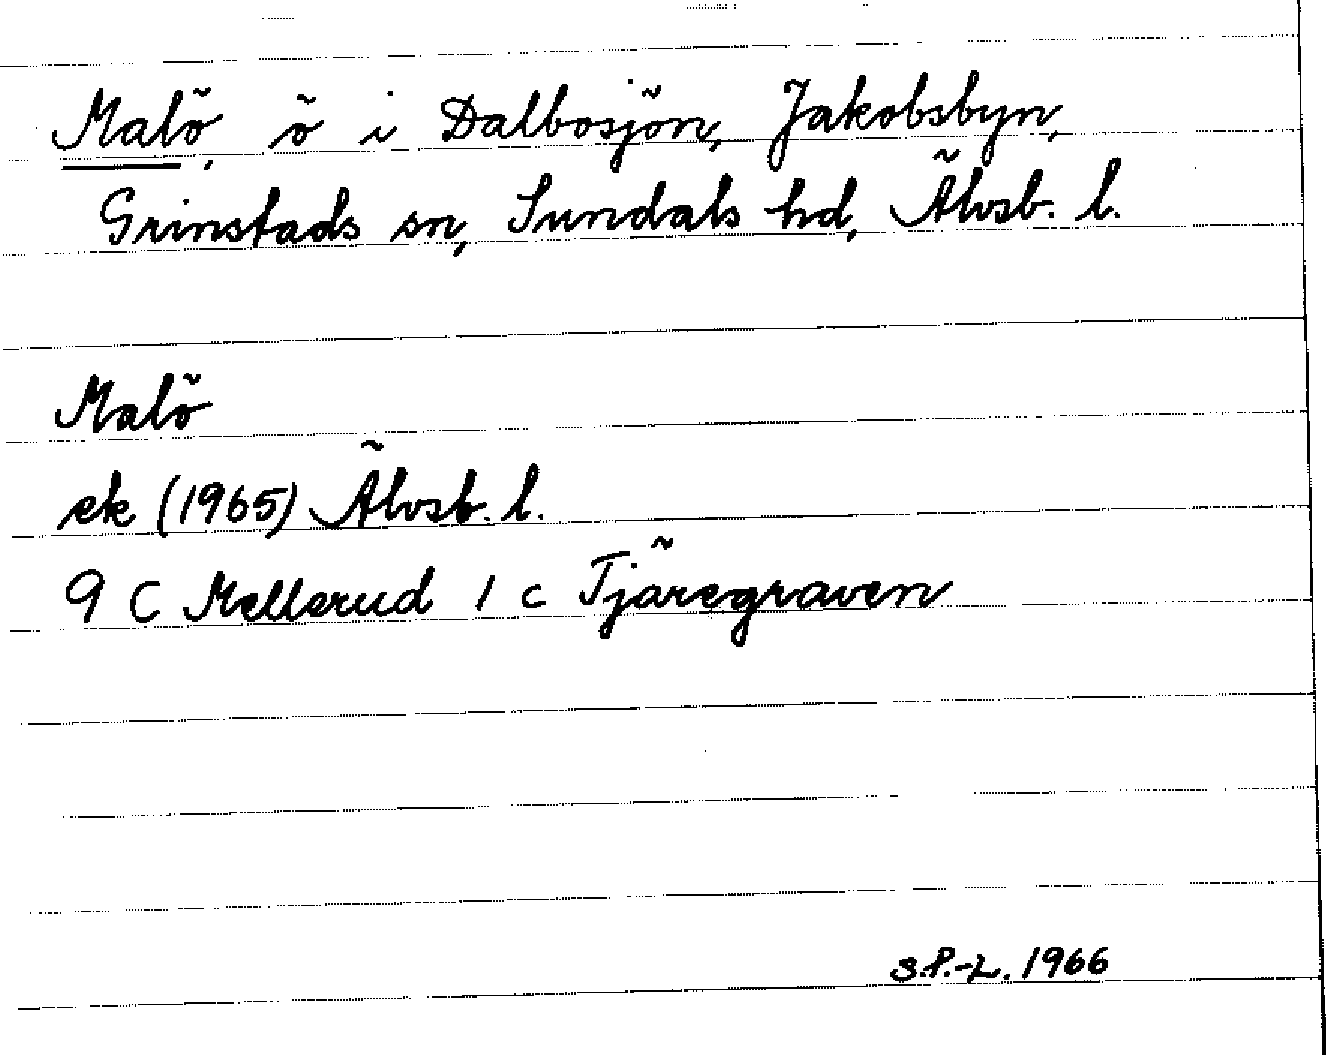 Malö, ö i Dalbosjön, Jakobsbyn,
Grinstads sn, Sundals hd, Älvsb. l.
Malö
ek (1965) Älvsb. l.
9 C Mellerud 1 c Tjäregraven
S.P.-L. 1966